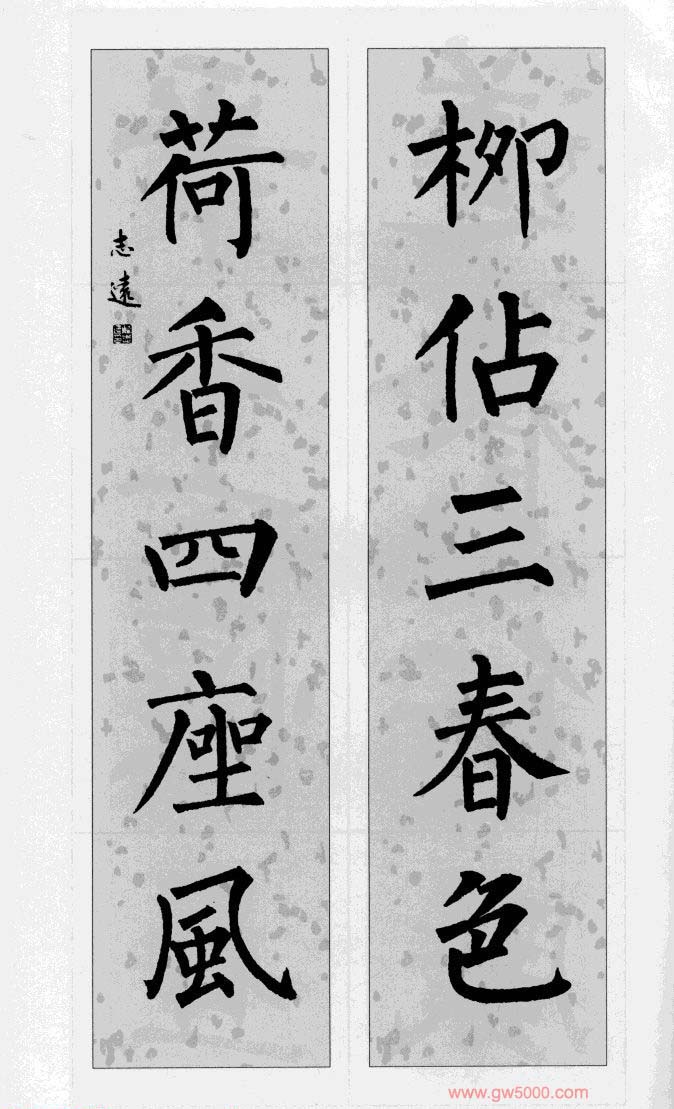 柳佔三春色
荷香四座風
志遠
www.gw5000.com